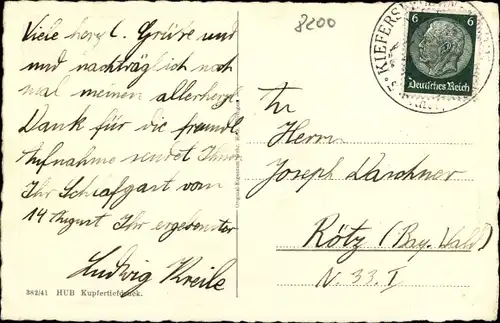 Viele herzl. Grüße und
und nachträglich noch
mal meinen allerherzl.
Dank für die freundl.
Aufnahme sendet Ihnen
Ihr Schlafgast vom
14 August Ihr ergebenster
Ludwig Kreile
382/41 HUB Kupfertiefdruck.
8200
KIEFERS
6 6
Deutsches Reich
An
Herrn
Joseph
Rötz (Bay. Wald)
N. 33. I